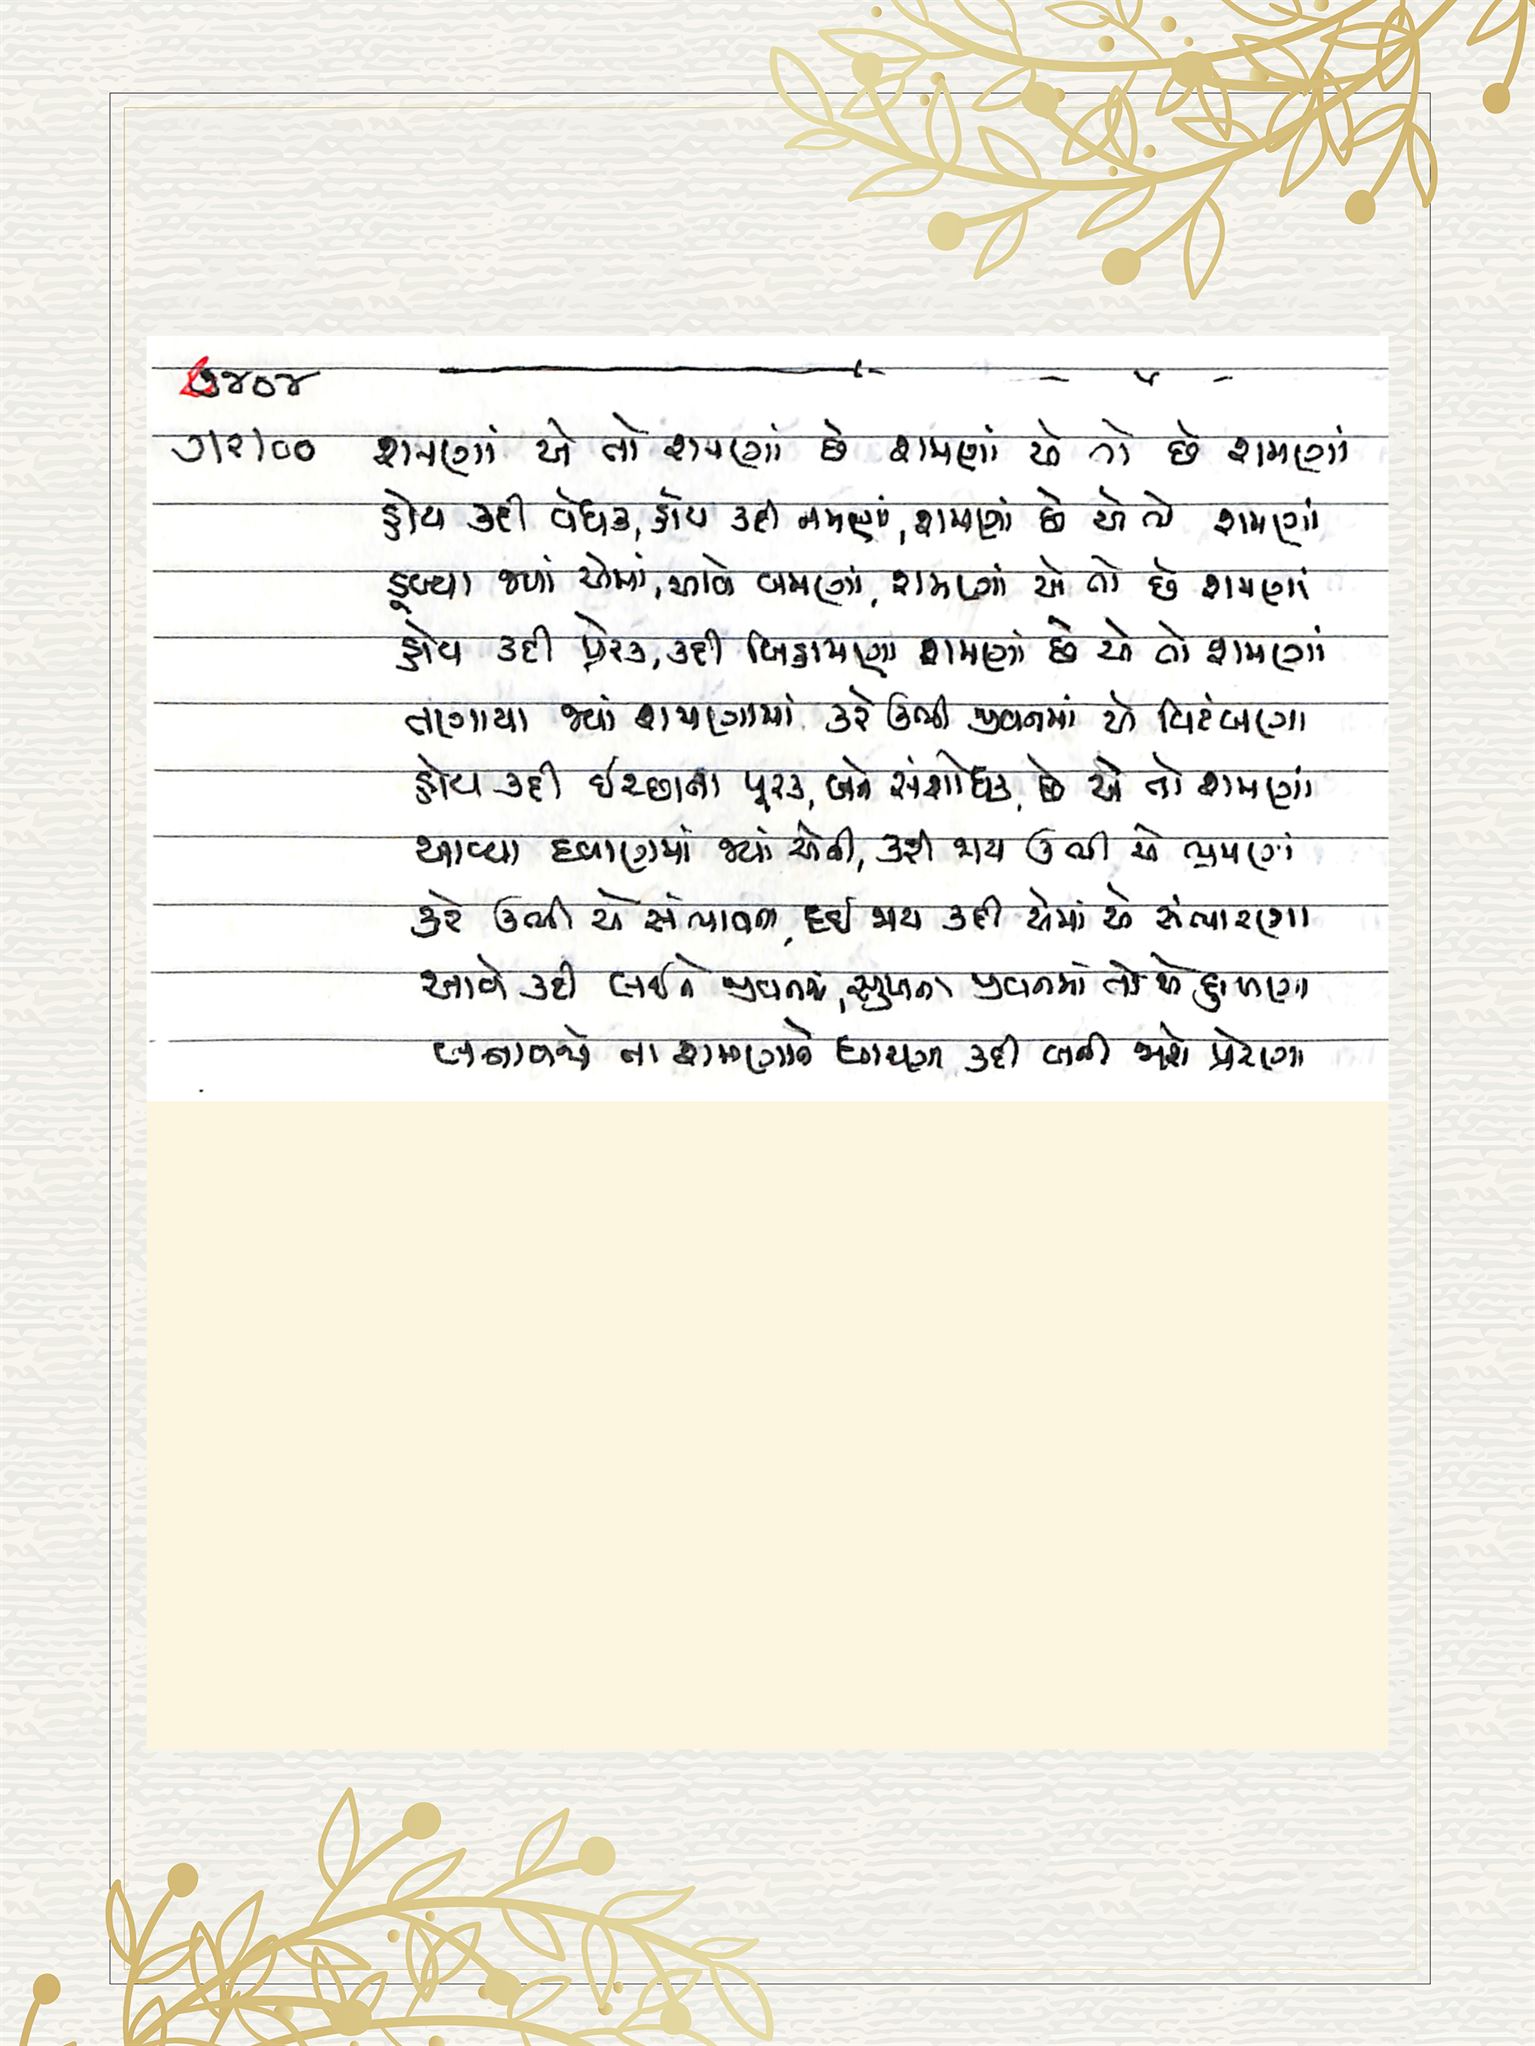 ૭૪૦૪
૭/૨/૦૦ શમણાં એ તો શમણાં છે શમણાં એ તો છે શમણાં
હોય કદી વેધક, હોય કદી નમણાં, શમણાં છે એ તો શમણાં
ડૂબ્યા જ્યાં એમાં, આવે બમણાં, શમણાં એ તો છે શમણાં
હોય કદી પ્રેરક, કદી બિહામણા શમણાં છે એ તો શમણાં
તણાયા જ્યાં શમણામાં કરે ઉભી જીવનમાં એ વિટંબણા
હોય કદી ઈચ્છાના પૂરક, બને સંશોધક, છે એ તો શમણાં
આવ્યા દબાણમાં જ્યાં એની, કરી જાય ઉભી એ ભ્રમણાં
કરે ઉભી એ સંભાવના, દઈ જાય કદી એમાં એ સંભારણા
આવે કદી લઈને જીવનમાં, સુખના જીવનમાં તો એ
બનાવજો ના શમણાંને કદી બની જાશે પ્રેરણા